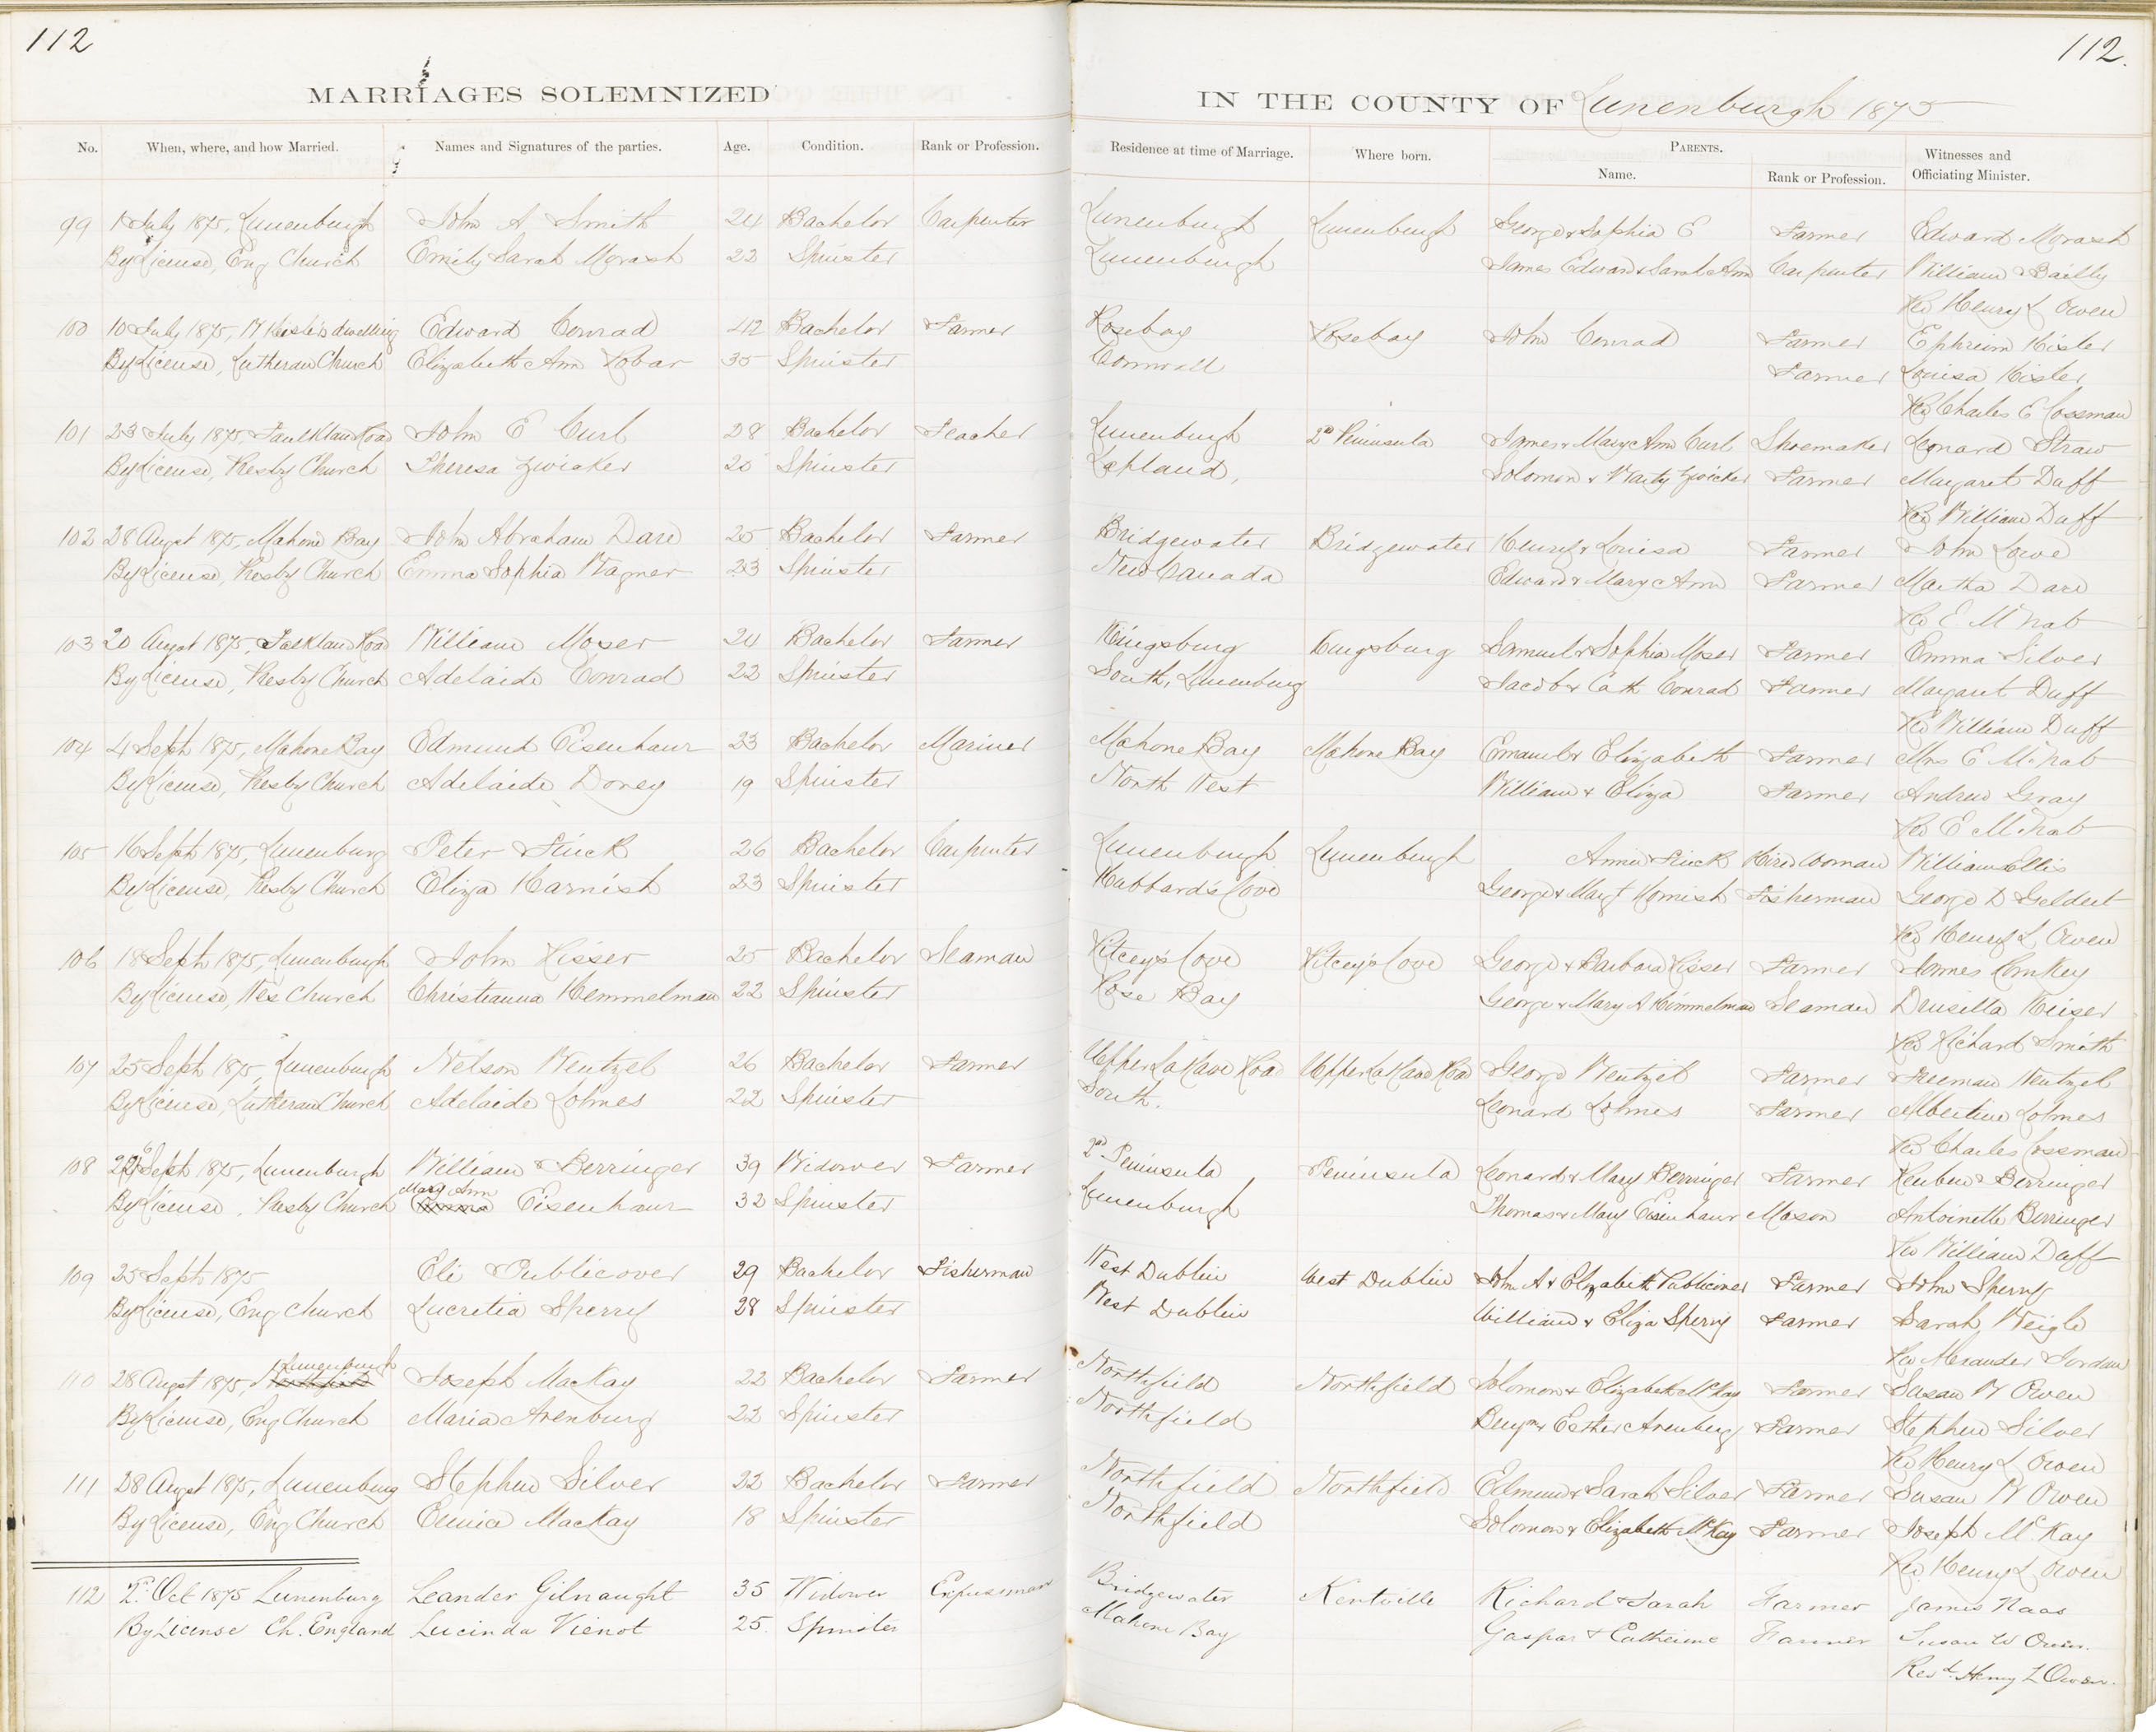 112
112.
MARRIAGES SOLEMNIZED
IN THE COUNTY OF Lunenburgh 1875
No. When, where, and how Married. Names and Signatures of the parties. Age. Condition. Rank or Profession. Residence at time of Marriage. Where born. PARENTS. Name. Rank or Profession. Witnesses and Officiating Minister.
99 1 July 1875, Lunenburgh John A Smith 24 Bachelor Carpenter Lunenburgh Lunenburgh George & Sophia E Farmer Edward Morash
By License, Eng Church Emily Sarah Morash 22 Spinster Lunenburgh James Edward & Sarah Ann Carpenter William Bailly
Rev Henry L Owen
100 10 July 1875, W Keisle's dwelling Edward Conrad 42 Bachelor Farmer Rosebay Rosebay John Conrad Farmer Ephreim Kisler
By License, Lutheran Church Elizabeth Ann Robar 35 Spinster Cornwall Farmer Louisa Kisler
Rev Charles E Cossman
101 23 July 1875, Faulkland Road John E Curl 28 Bachelor Teacher Lunenburgh 2nd Peninsula James & Mary Ann Curl Shoemaker Leonard Straw
By License, Presby Church Theresa Zwicker 20 Spinster Lapland, Solomon & Zwicker Farmer Margaret Duff
Rev William Duff
102 28 Augst 1875, Mahone Bay John Abraham Dare 25 Bachelor Farmer Bridgewater Bridgewater Henry & Louisa Farmer John Lowe
By License, Presby Church Emma Sophia Wagner 23 Spinster New Canada Edward & Mary Ann Farmer Martha Dare
Rev E McNab
103 20 Augst 1875, Falkland Road William Moser 24 Bachelor Farmer Kingsburg Kingsburg Samuel & Sophia Moser Farmer Emma Silver
By License, Presby Church Adelaide Conrad 22 Spinster South, Lunenburg Jacob & Cath Conrad Farmer Margaret Duff
Rev William Duff
104 4 Sept 1875, Mahone Bay Edmund Eisenhaur 23 Bachelor Mariner Mahone Bay Mahone Bay Emanuel & Elizabeth Farmer Mrs E McNab
By License, Presby Church Adelaide Doney 19 Spinster North West William & Eliza Farmer Andrew Gray
Rev E McNab
105 16 Sept 1875, Lunenburg Peter Finck 26 Bachelor Carpenter Lunenburgh Lunenburgh Annie Finck Hired Woman William Ellis
By License, Presby Church Eliza Harnish 23 Spinster Hubbard's Cove George & Margt Harnish Fisherman George D Geldert
Rev Henry L Owen
106 18 Sept 1875, Lunenburgh John Risser 25 Bachelor Seaman Ritcey's Cove Ritcey's Cove George & Barbara Risser Farmer James Conkey
By License, Wes Church Christianna Hemmelman 22 Spinster Rose Bay George & Mary A Himmelman Seaman Drusilla Keiser
Rev Richard Smith
107 25 Sept 1875, Lunenburgh Nelson Wentzel 26 Bachelor Farmer Upper LaHave Road Upper LaHave Road George Wentzel Farmer Freeman Wentzel
By License, Lutheran Church Adelaide Lohnes 22 Spinster South. Leonard Lohnes Farmer Albertine Lohnes
Rev Charles Cossman
108 Sept 1875, Lunenburgh William Berringer 39 Widower Farmer 2nd Peninsula Peninsula Leonard & Mary Berringer Farmer Reuben Berringer
By License, Presby Church Mary Ann Eisenhaur 32 Spinster Lunenburgh Thomas & Mary Eisenhaur Mason Antoinette Berringer
Rev William Duff
109 25 Sept 1875 Eli Publicover 29 Bachelor Fisherman West Dublin West Dublin John A & Elizabeth Publicover Farmer John Sperry
By License, Eng Church Lucretia Sperry 28 Spinster West Dublin William & Eliza Sperry Farmer Sarah Weigle
Rev Alexander Jordan
110 28 Augst 1875, Northfield Lunenburgh Joseph MacKay 22 Bachelor Farmer Northfield Northfield Solomon & Elizabeth McKay Farmer Susan W Owen
By License, Eng Church Maria Arenburg 22 Spinster Northfield Benjn & Esther Arenburg Farmer Stephen Silver
Rev Henry L Owen
111 28 Augst 1875, Lunenburg Stephen Silver 22 Bachelor Farmer Northfield Northfield Edmund & Sarah Silver Farmer Susan W Owen
By License, Eng Church Eunice MacKay 18 Spinster Northfield Solomon & Elizabeth McKay Farmer Joseph McKay
Rev Henry L Owen
112 2d Oct 1875 Lunenburg Leander Gilnaught 35 Widower Expressman Bridgewater Kentville Richard & Sarah Farmer James Naas
By License Ch. England Lucinda Vienot 25 Spinster Mahone Bay Gaspar & Catherine Farmer Susan W Owen.
Revd. Henry L Owen.